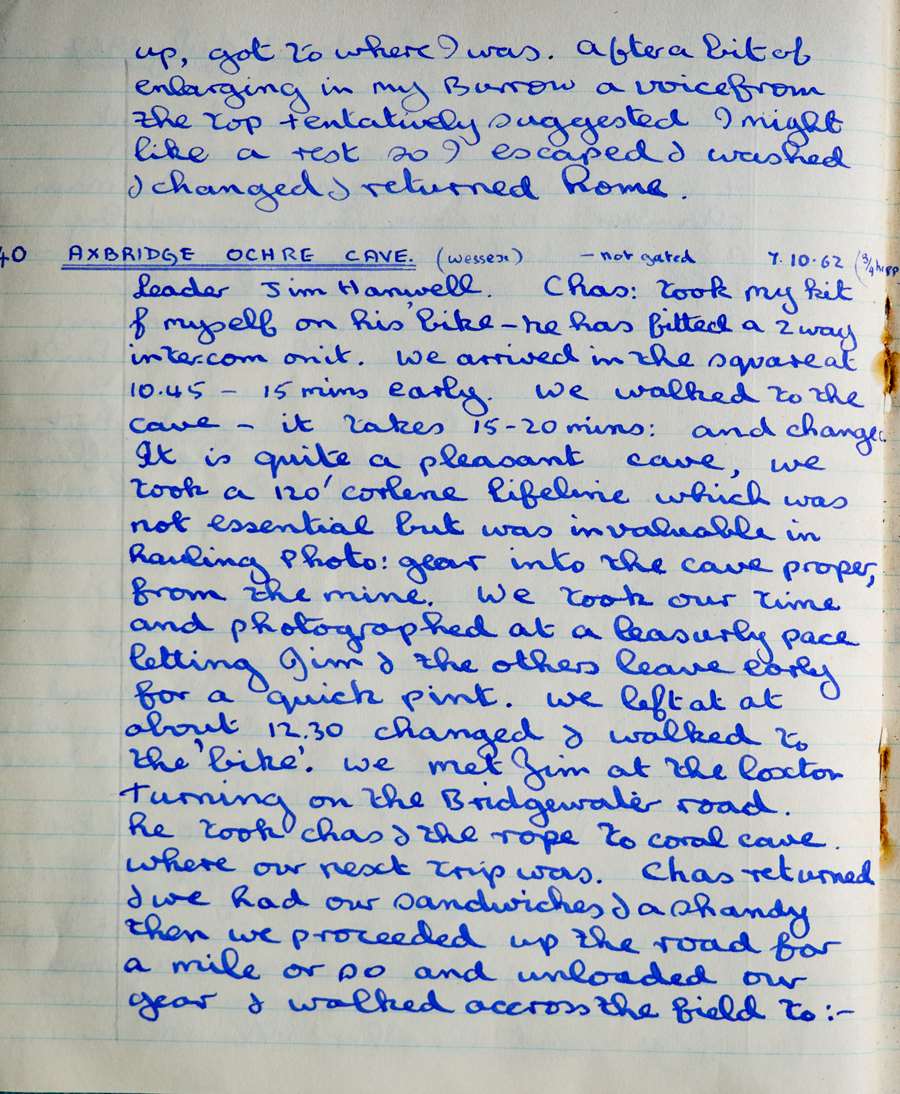 up, got to where I was. After a bit of
enlarging in my Burrow a voice from
the top tentatively suggested I might
like a rest so I escaped & washed
& changed & returned home.
40 AXBRIDGE OCHRE CAVE. (wessex) - not gated 7.10.62 (3/4
Leader Jim Hanwell. Chas: took my kit
& myself on his 'bike - he has fitted a 2 way
inter.com on it. We arrived in the square at
10.45 - 15 mins early. We walked to the
cave - it takes 15-20 mins: and change
It is quite a pleasant cave, we
took a 120' corlene lifeline which was
not essential but was invaluable in
hauling photo: gear into the cave proper,
from the mine. We took our time
and photographed at a leasurly pace
letting Jim & the others leave early
for a quick pint. we left at at
about 12.30 changed & walked to
the 'bike'. we met Jim at the Loxton
turning on the Bridgewater road.
he took chas & the rope to coral cave.
where our next trip was. Chas returned
& we had our sandwiches & a shandy
then we proceeded up the road for
a mile or so and unloaded our
gear & walked accross the field to :-